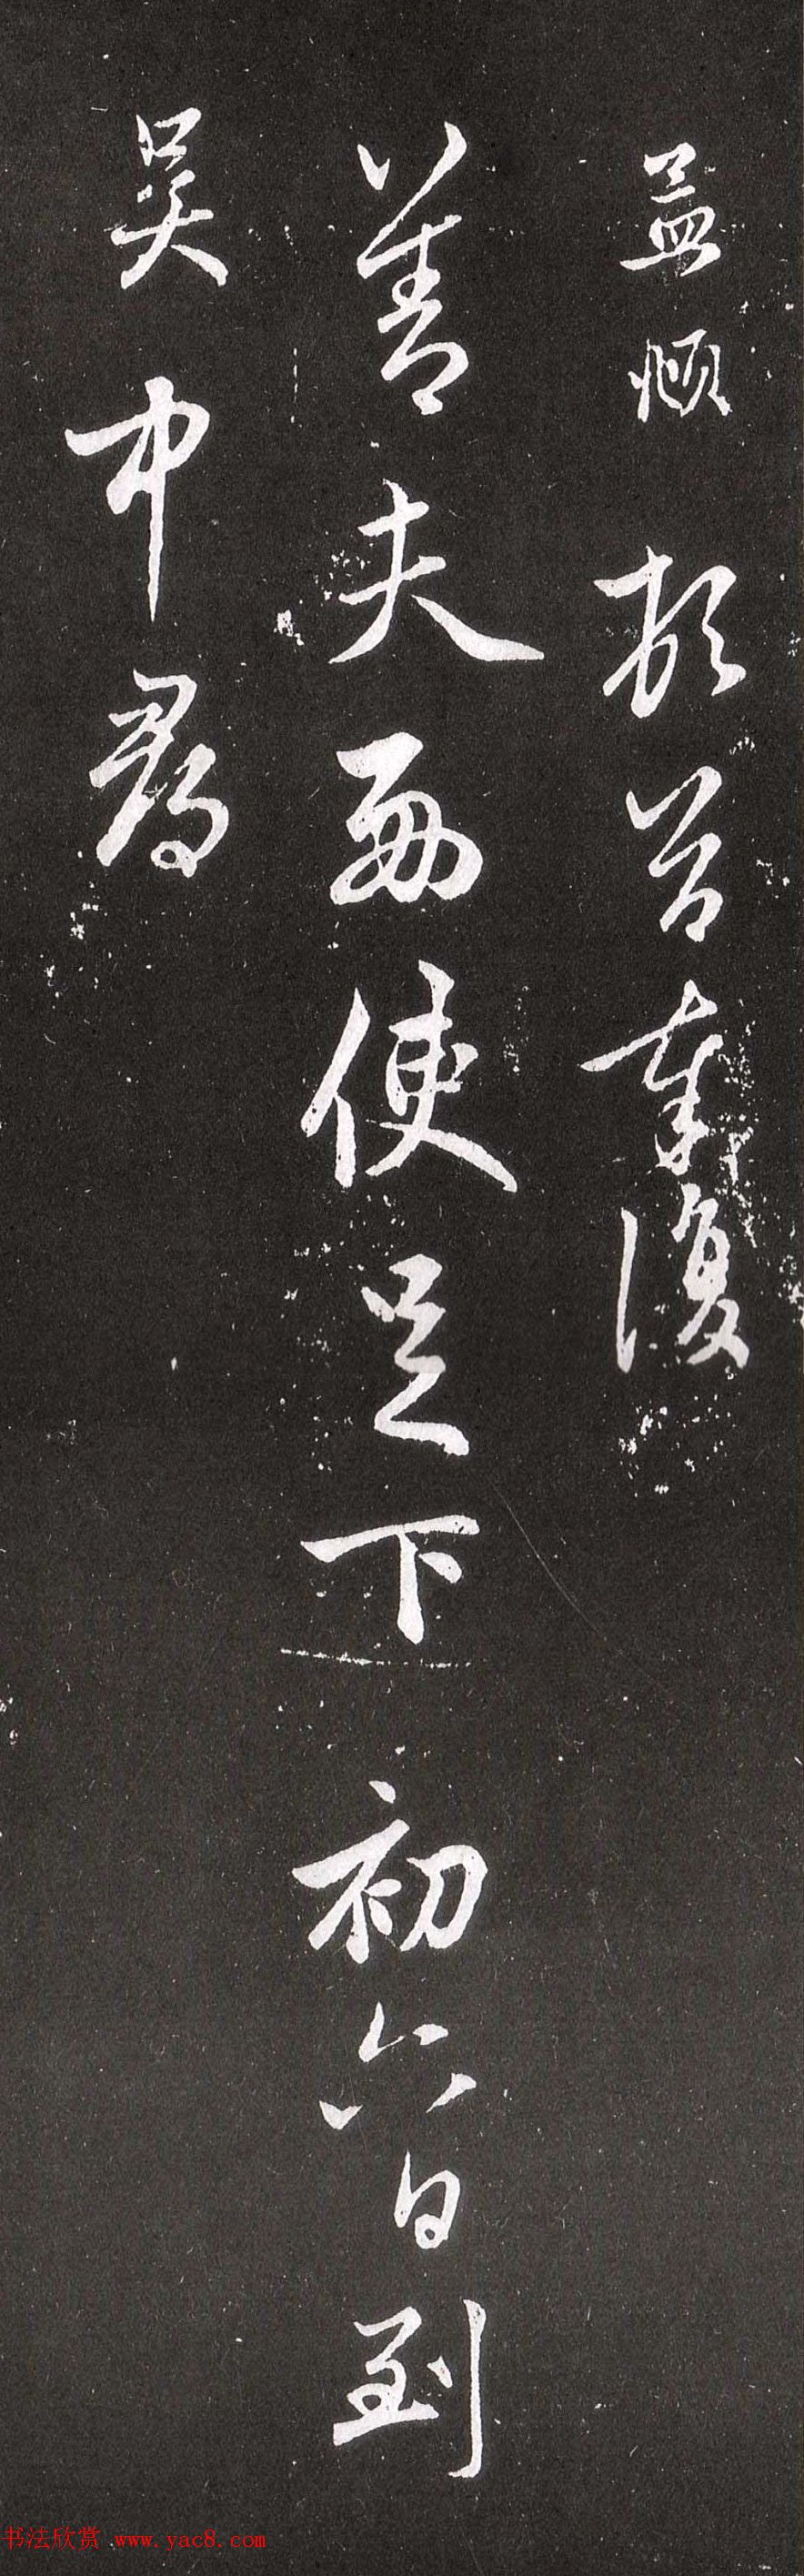 孟頫頓首奉復
善夫西使足下初六日到
吴中尋
书法欣赏 www.yac8.com